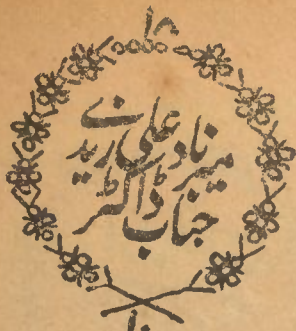 جناب ڈاکٹر
میر ناد علی زیدے